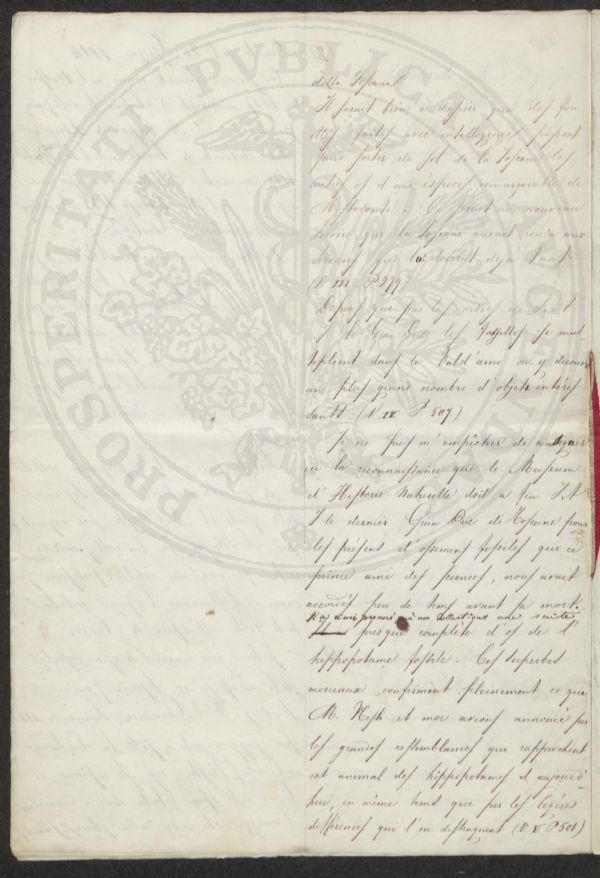 della Toscana
Il serait bien à desirer que des foui
lles faites avec intelligence, pussent
faire sortir du sol de la Toscane les
autres os d'une espece remarquable de
Mastodonte. Ce serait un nouveau
service que la Toscane aurait rendu aux
sciences qui lui doivent deja tant
(V. III P. 379)
Depuis que par les ordres de
le Gran Duc les fossilles se mul
tiplient dans le Vald'arno on y decouvre
une plus grand nombre d'objets interes
sants (V. IV P. 507)
Je ne puis m'empêcher de consigner
ici la reconnaissance que le Museum
d'Histoire Naturelle doit a feu S A
I le dernier Gran Duc de Toscane pour
les présens d'ossemens fossiles que ce
prince ami des sciences, nous avait
accordés peu de tems avant sa mort.
Il a ainsi procuré à nos collections une suite
presque complète d'os de l'
hippopotame fossile. Ces superbes
morceaux confirment pleinement ce que
M. Nesti et moi avions annoncé sur
les grandes ressemblances que rapprochent
cet animal des hippopotames d'aujourd'
hui, en même tems que sur les légères
différences qui l'en distinguent (V. V P 501)
PROSPERITATI PVBLICAE